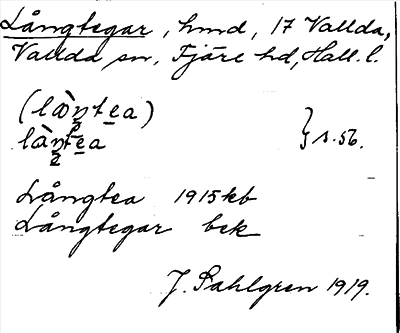 Långtegar, hmd, 17 Vallda,
Vallda sn, Fjäre hd, Hall. l.
(læ̀n̥tea)
làn̥tea } s. 56.
Långtea 1915 kb
Långtegar bek
J. Sahlgren 1919.